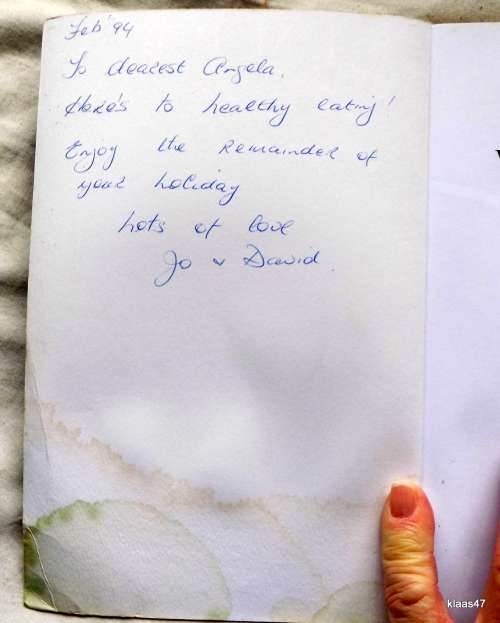 Feb '94
To dearest Angela,
Here's to healthy eating!
Enjoy the remainder of
your holiday
Lots of love
Jo & David.
klaas47